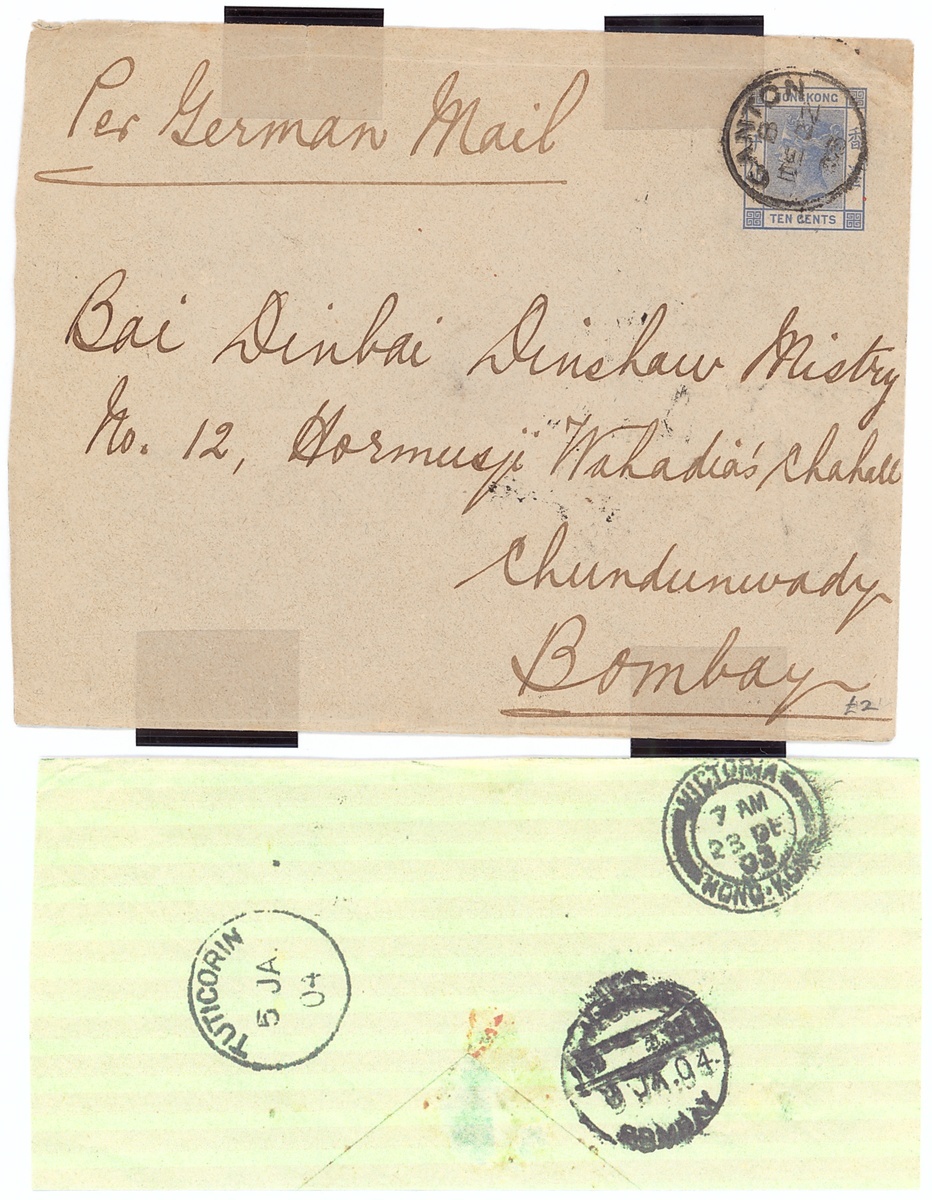 Per German Mail
HONGKONG
CANTON
TEN CENTS
Bai Dinbai Dinshaw Mistry
No. 12, Hormusji Wahadia's Chahall
Chundunwady
Bombay
£2
VICTORIA
7 AM
23 DE
03
HONG-KONG
TUTICORIN
5 JA
04
JA.04.
BOMBAY